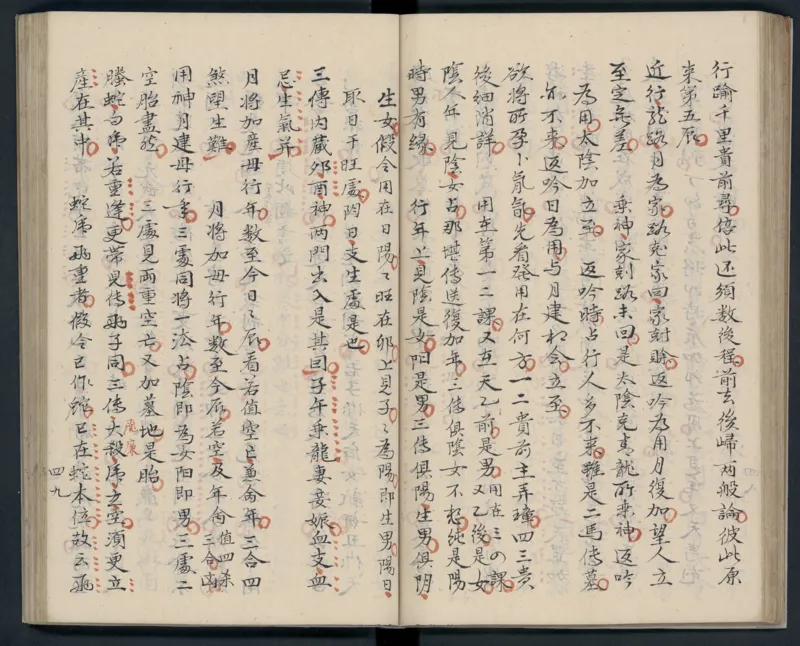 行踰千里貴前尋停此还須数後程前去後歸两般論彼此原
来第五辰
近行龍路月為家路尅家回家尅賒返吟為用月復加望人立
至定無差　乗神家刻路未回是太陰尅青龍所乗神返吟
為用太陰加立至　返吟時占行人多不来雖是二馬傳墓
亦不来返吟日為用与月建相会立至
欲将所孕卜氣氤先看發用在何方一二貴前主弄璋四三貴
後細消詳　用在第一二課又在天乙前是男用在三四課又乙後是女
陰人年見陰女占那堪傳送復加年三傳俱陰女不想純是陽
時男有縁　行年上見陰是女阳是男三傳俱陽生男俱阴
生女假令用在日陽々旺在卯上見子々為陽即生男陽日
取日干旺處陰日支生處是也
三傳内蔵夘酉神两門出入是其因子午乗龍妻妾娠血支血
忌生氣并
月将加産母行年数至今日々辰看若值空亡并命年三合四
煞望生難　月将加母行年数至今辰若空及年命值四杀三合凶
用神月建母行年三處同将一法占陰即為女阳即男三處二
空胎盡然　三處見两重空亡又加墓地是胎
螣蛇白虎若重逢更帯見傳酉子同三傳大殺虎為空須更立
產在其中　蛇虎酉重者假令巳作蛇巳在蛇本位故云酉
魔康
四九